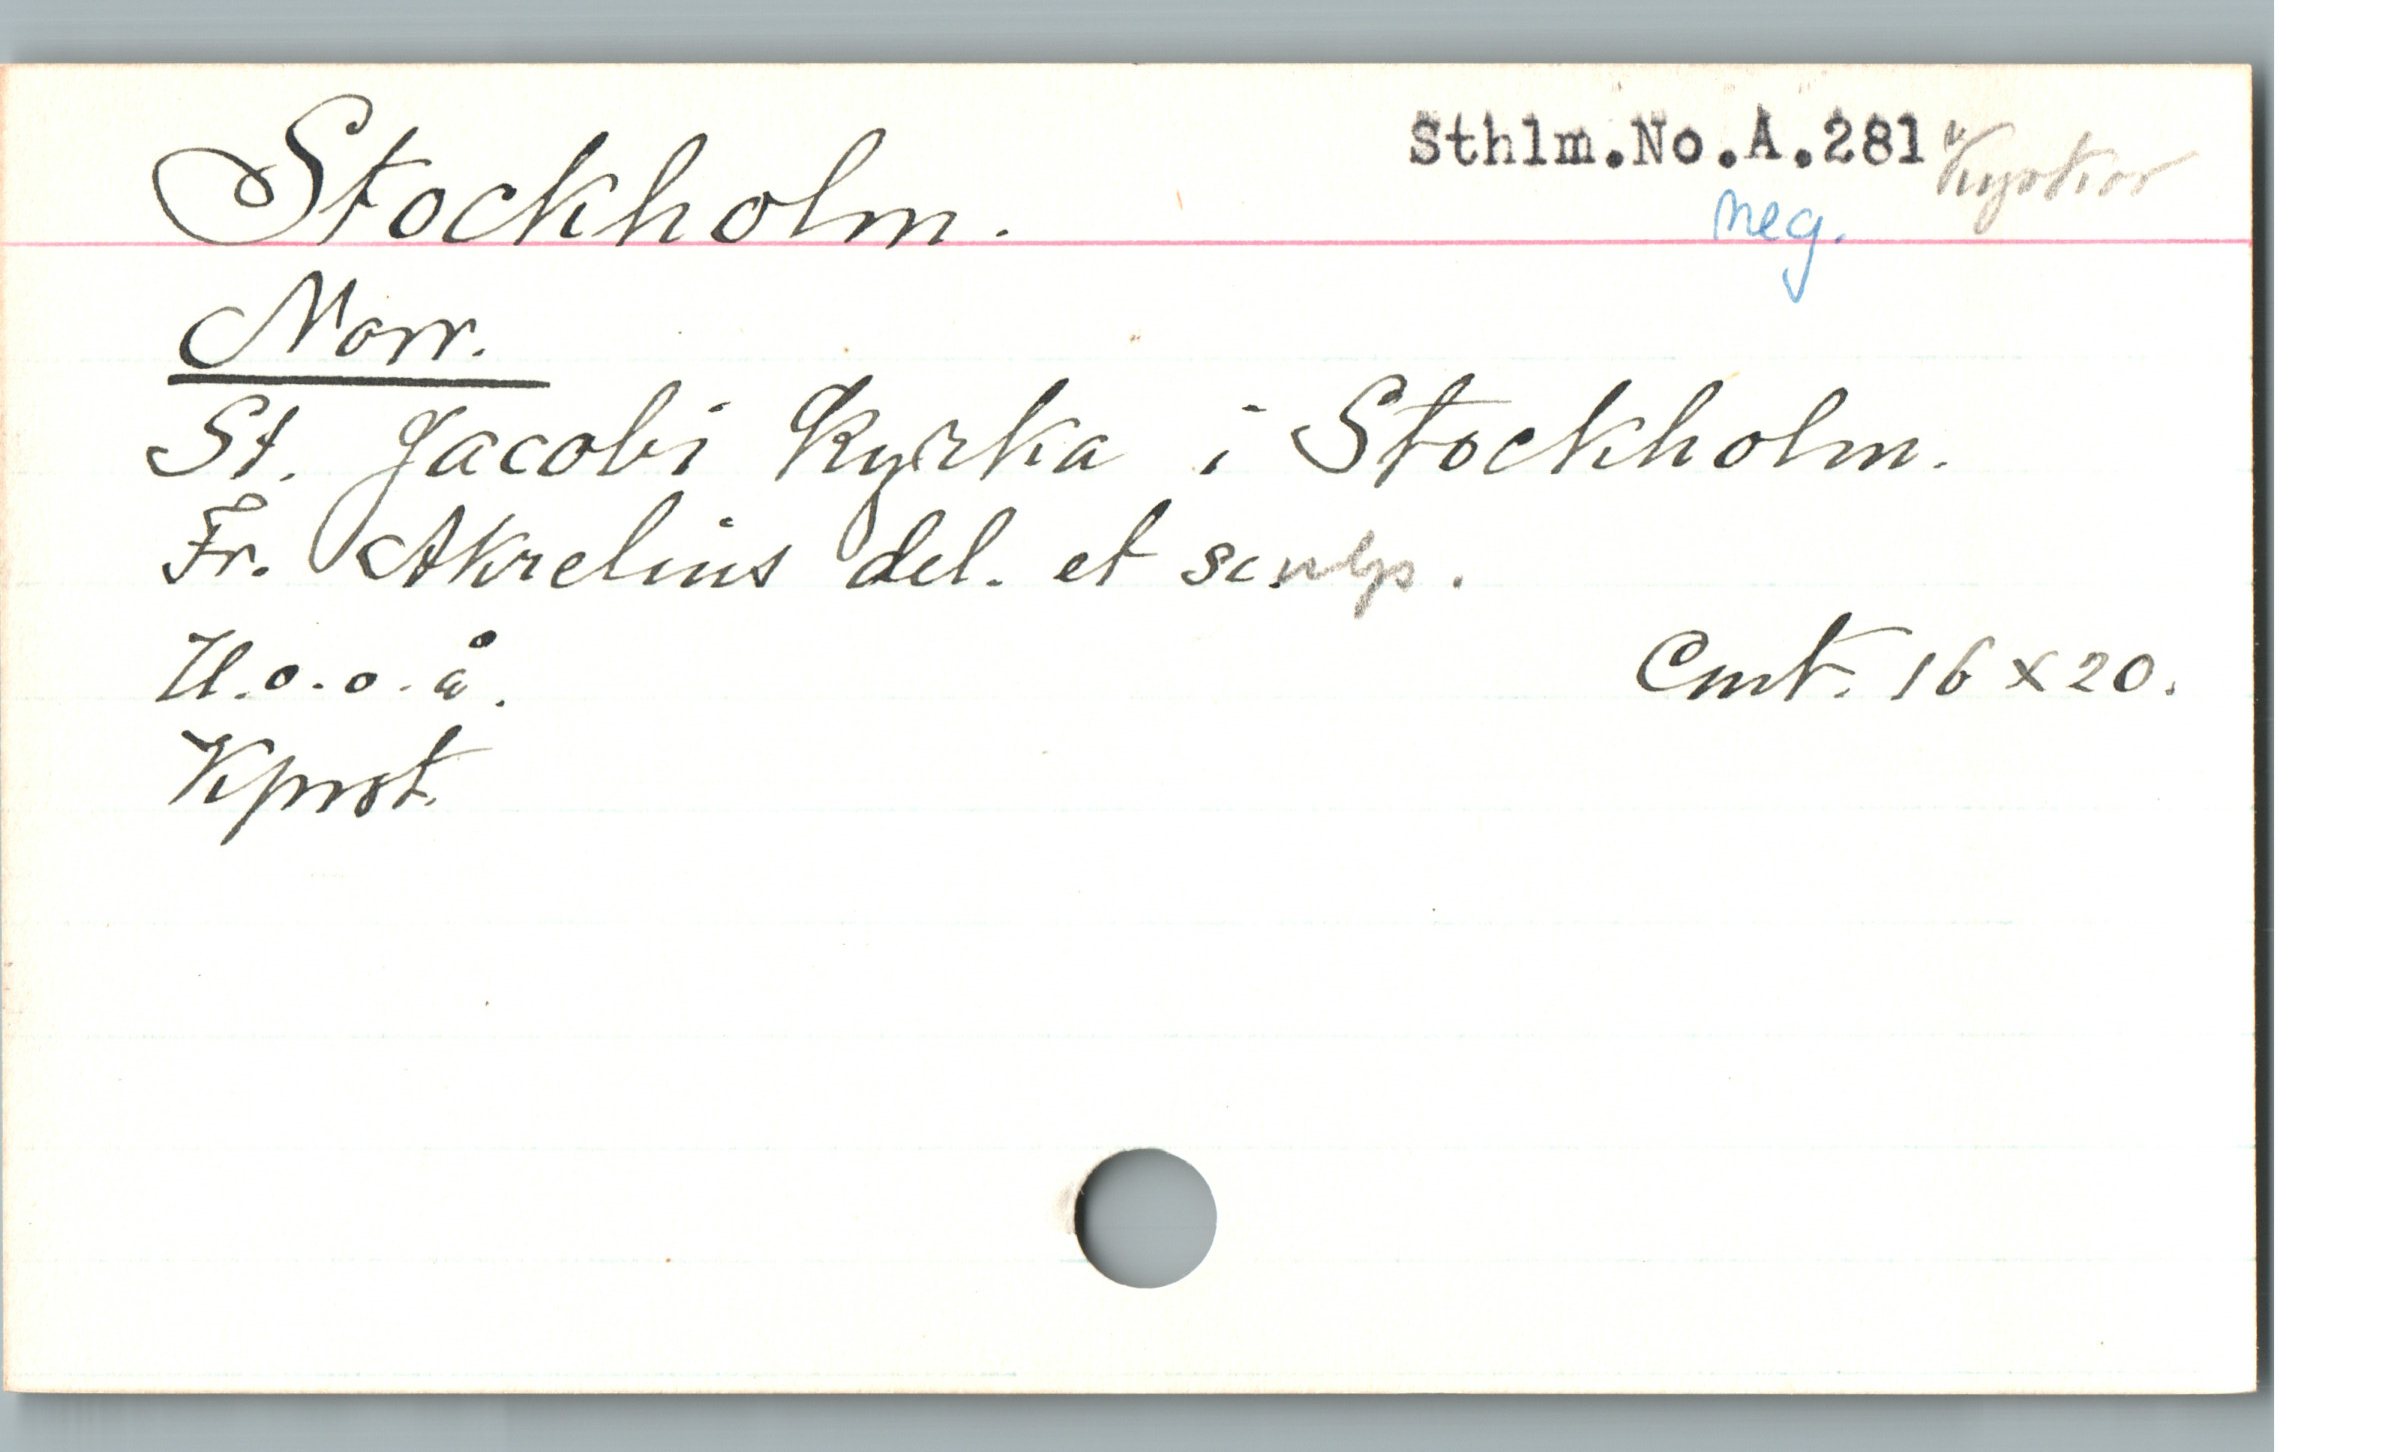 Stockholm.
Sthlm.No.A.281 Kyrkor
neg.
Norr.
St. Jacobi Kyrka i Stockholm.
Fr. Akrelius del. et sculps.
U.o.o.å.
Cmt. 16 x 20.
Kprst.